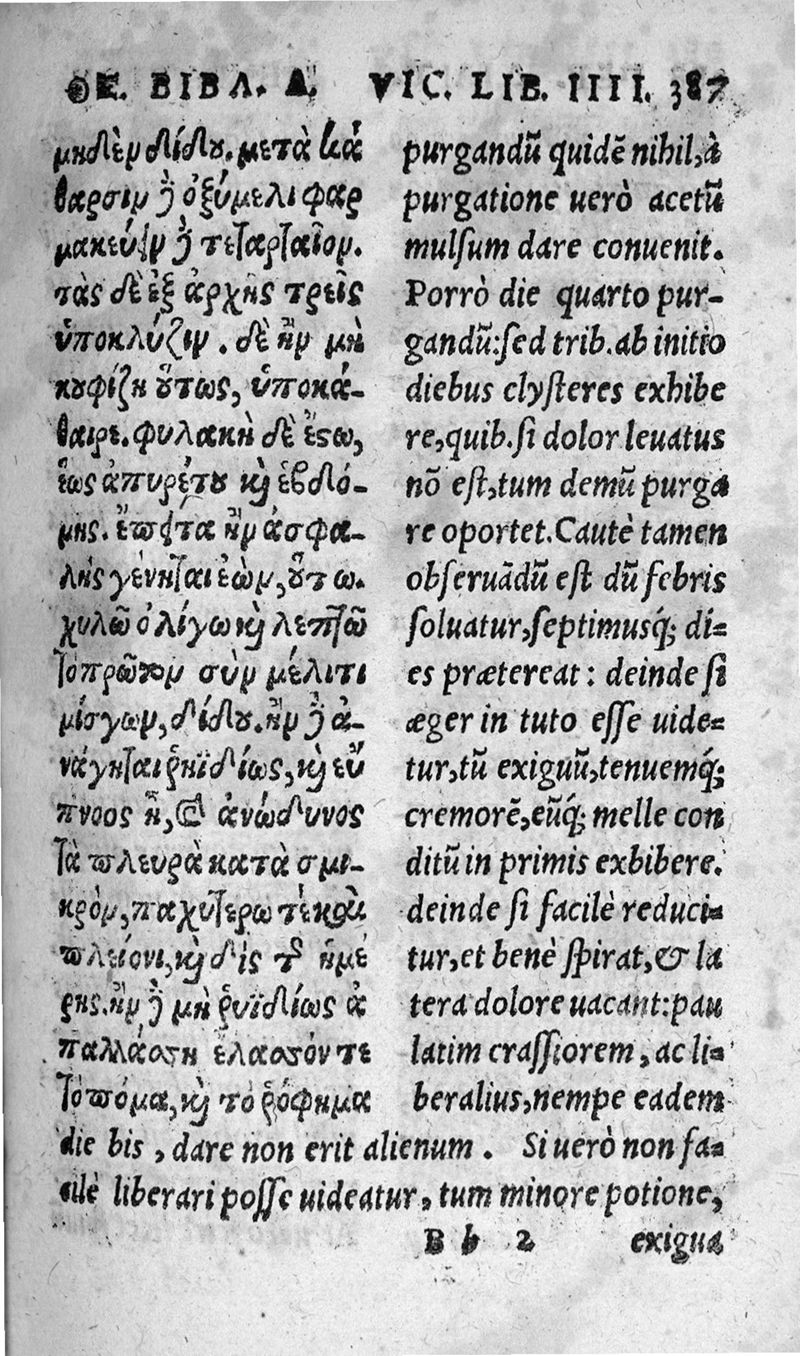 ΘΕ. ΒΙΒΛ. Δ. VIC. LIB. IIII. 387
μηδὲν δίδου. μετὰ κά
θαρσιν ἢ ὀξύμελι φαρ
μακεύειν ἢ τεταρταῖον.
τὰς δὲ ἐξ ἀρχῆς τρεῖς
ὑποκλύζιν. δὲ ἢν μὴ
κουφίζη οὕτως, ὑποκά-
θαιρε. φυλακὴ δὲ ἔστω,
ἕως ἀπυρέτου καὶ ἑβδό-
μης. ἔπειτα ἢν ἀσφα-
λὴς γένηται ἐὼν, οὕτω.
χυλῶ ὀλίγω καὶ λεπτῶ
τοπρῶτον σὺν μέλιτι
μίσγων, δίδου. ἢν ἢ ἀ-
νάγηται ῥηϊδίως, καὶ εὔ
πνοος ἦ, καὶ ἀνώδυνος
τὰ πλευρὰ κατὰ σμι-
κρὸν, παχυτέρω τὲ καὶ
πλείονι, καὶ δὶς τῆς ἡμέ
ρης. ἢν ἢ μὴ ῥηϊδίως ἀ
παλλάσση ἐλασσόν τε
τοπόμα, καὶ τὸ ῥόφημα
purgandū quidē nihil, à
purgatione uerò acetū
mulsum dare conuenit.
Porrò die quarto pur-
gandū: sed trib. ab initio
diebus clysteres exhibe
re, quib. si dolor leuatus
nō est, tum demū purga
re oportet. Cautè tamen
obseruādū est dū febris
soluatur, septimusq́; di=
es prætereat: deinde si
æger in tuto esse uide=
tur, tū exiguū, tenuemq́;
cremorē, eūq́; melle con
ditū in primis exbibere.
deinde si facilè reduci=
tur, et benè spirat, & la
tera dolore uacant: pau
latim crassiorem, ac li=
beralius, nempe eadem
die bis, dare non erit alienum. Si uerò non fa=
cilè liberari posse uideatur, tum minore potione,
B b 2 exigua